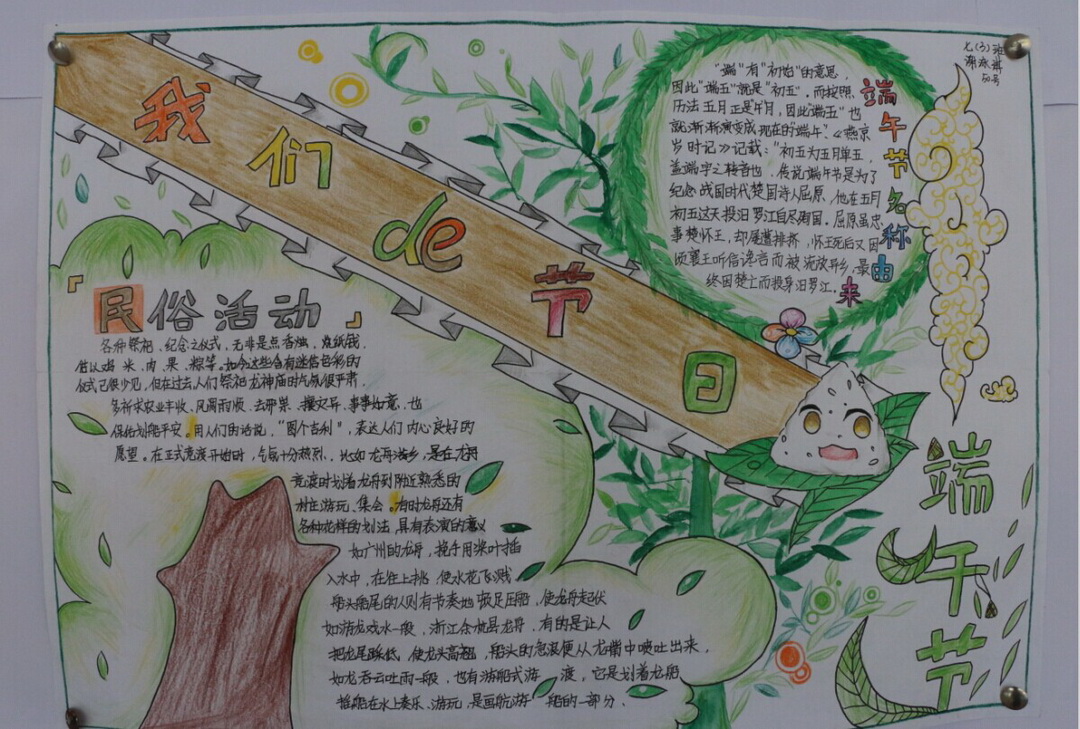 七(3)班
50号
我们de节日
端午节名称由来
"端"有"初始"的意思，
因此"端五"就是"初五"。而按照
历法五月正是午月，因此"端五"也
就渐渐演变成现在的"端午"。《燕京
岁时记》记载："初五为五月单五，
盖端字之转音也，传说端午节是为了
纪念战国时代楚国诗人屈原，他在五月
初五这天投汨罗江自尽殉国，屈原虽忠
事楚怀王，却屡遭排挤，怀王死后又因
顷襄王听信谗言而被流放异乡，最
终因楚亡而投身汨罗江。
民俗活动
各种祭祀、纪念之仪式，无非是点香烛，烧纸钱，
供以鸡、米、肉、果、粽等。如今这些含有迷信色彩的
仪式已很少见，但在过去人们祭祀龙神庙时气氛很严肃，
多祈求农业丰收、风调雨顺、去邪祟、攘灾异、事事如意，也
保佑划船平安。用人们的话说，"图个吉利"，表达人们内心良好的
愿望。在正式竞渡开始时，气氛十分热烈。比如龙舟游乡，是在龙舟
竞渡时划着龙舟到附近熟悉的
村庄游玩、集会。有时龙舟还有
各种花样的划法，具有表演的意义
如广州的龙舟，挽手用桨叶插
入水中，在往上挑，使水花飞溅
船头船尾的人则有节奏地顿足压船，使龙舟起伏
如游龙戏水一般，浙江余杭县龙舟，有的是让人
把龙尾踩低，使龙头高翘，船头的急浪便从龙嘴中喷吐出来，
如龙吞云吐雨一般，也有游船式游渡，它是划着龙船
在水上奏乐、游玩，是画航游船的一部分、
端午节